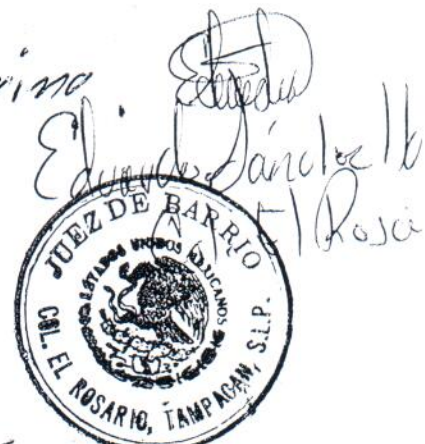 Eduardo Sánchez
El
JUEZ DE BARRIO
ESTADOS UNIDOS MEXICANOS
COL. EL ROSARIO, TAMPACAN, S.L.P.